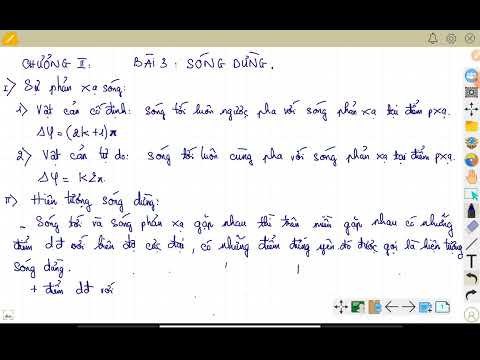 CHƯƠNG II: BÀI 3: SÓNG DỪNG.
I> Sự phản xạ sóng:
1) Vật cản cố định: sóng tới luôn ngược pha với sóng phản xạ tại điểm pxạ.
Δφ = (2k+1)π
2) Vật cản tự do: sóng tới luôn cùng pha với sóng phản xạ tại điểm pxạ.
Δφ = k2π
II> Hiện tượng sóng dừng:
- Sóng tới và sóng phản xạ gặp nhau thì trên miền gặp nhau có những
điểm dđ với biên độ cực đại, có những điểm đứng yên đó được gọi là hiện tượng
sóng dừng.
+ điểm dđ với